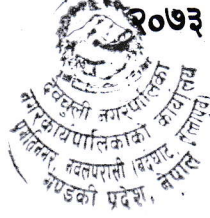 २०७३
देवचुली नगरपालिका
नगरकार्यपालिकाको कार्यालय
प्रगतिनगर, नवलपरासी (बर्दघाट सुस्तापूर्व)
गण्डकी प्रदेश, नेपाल